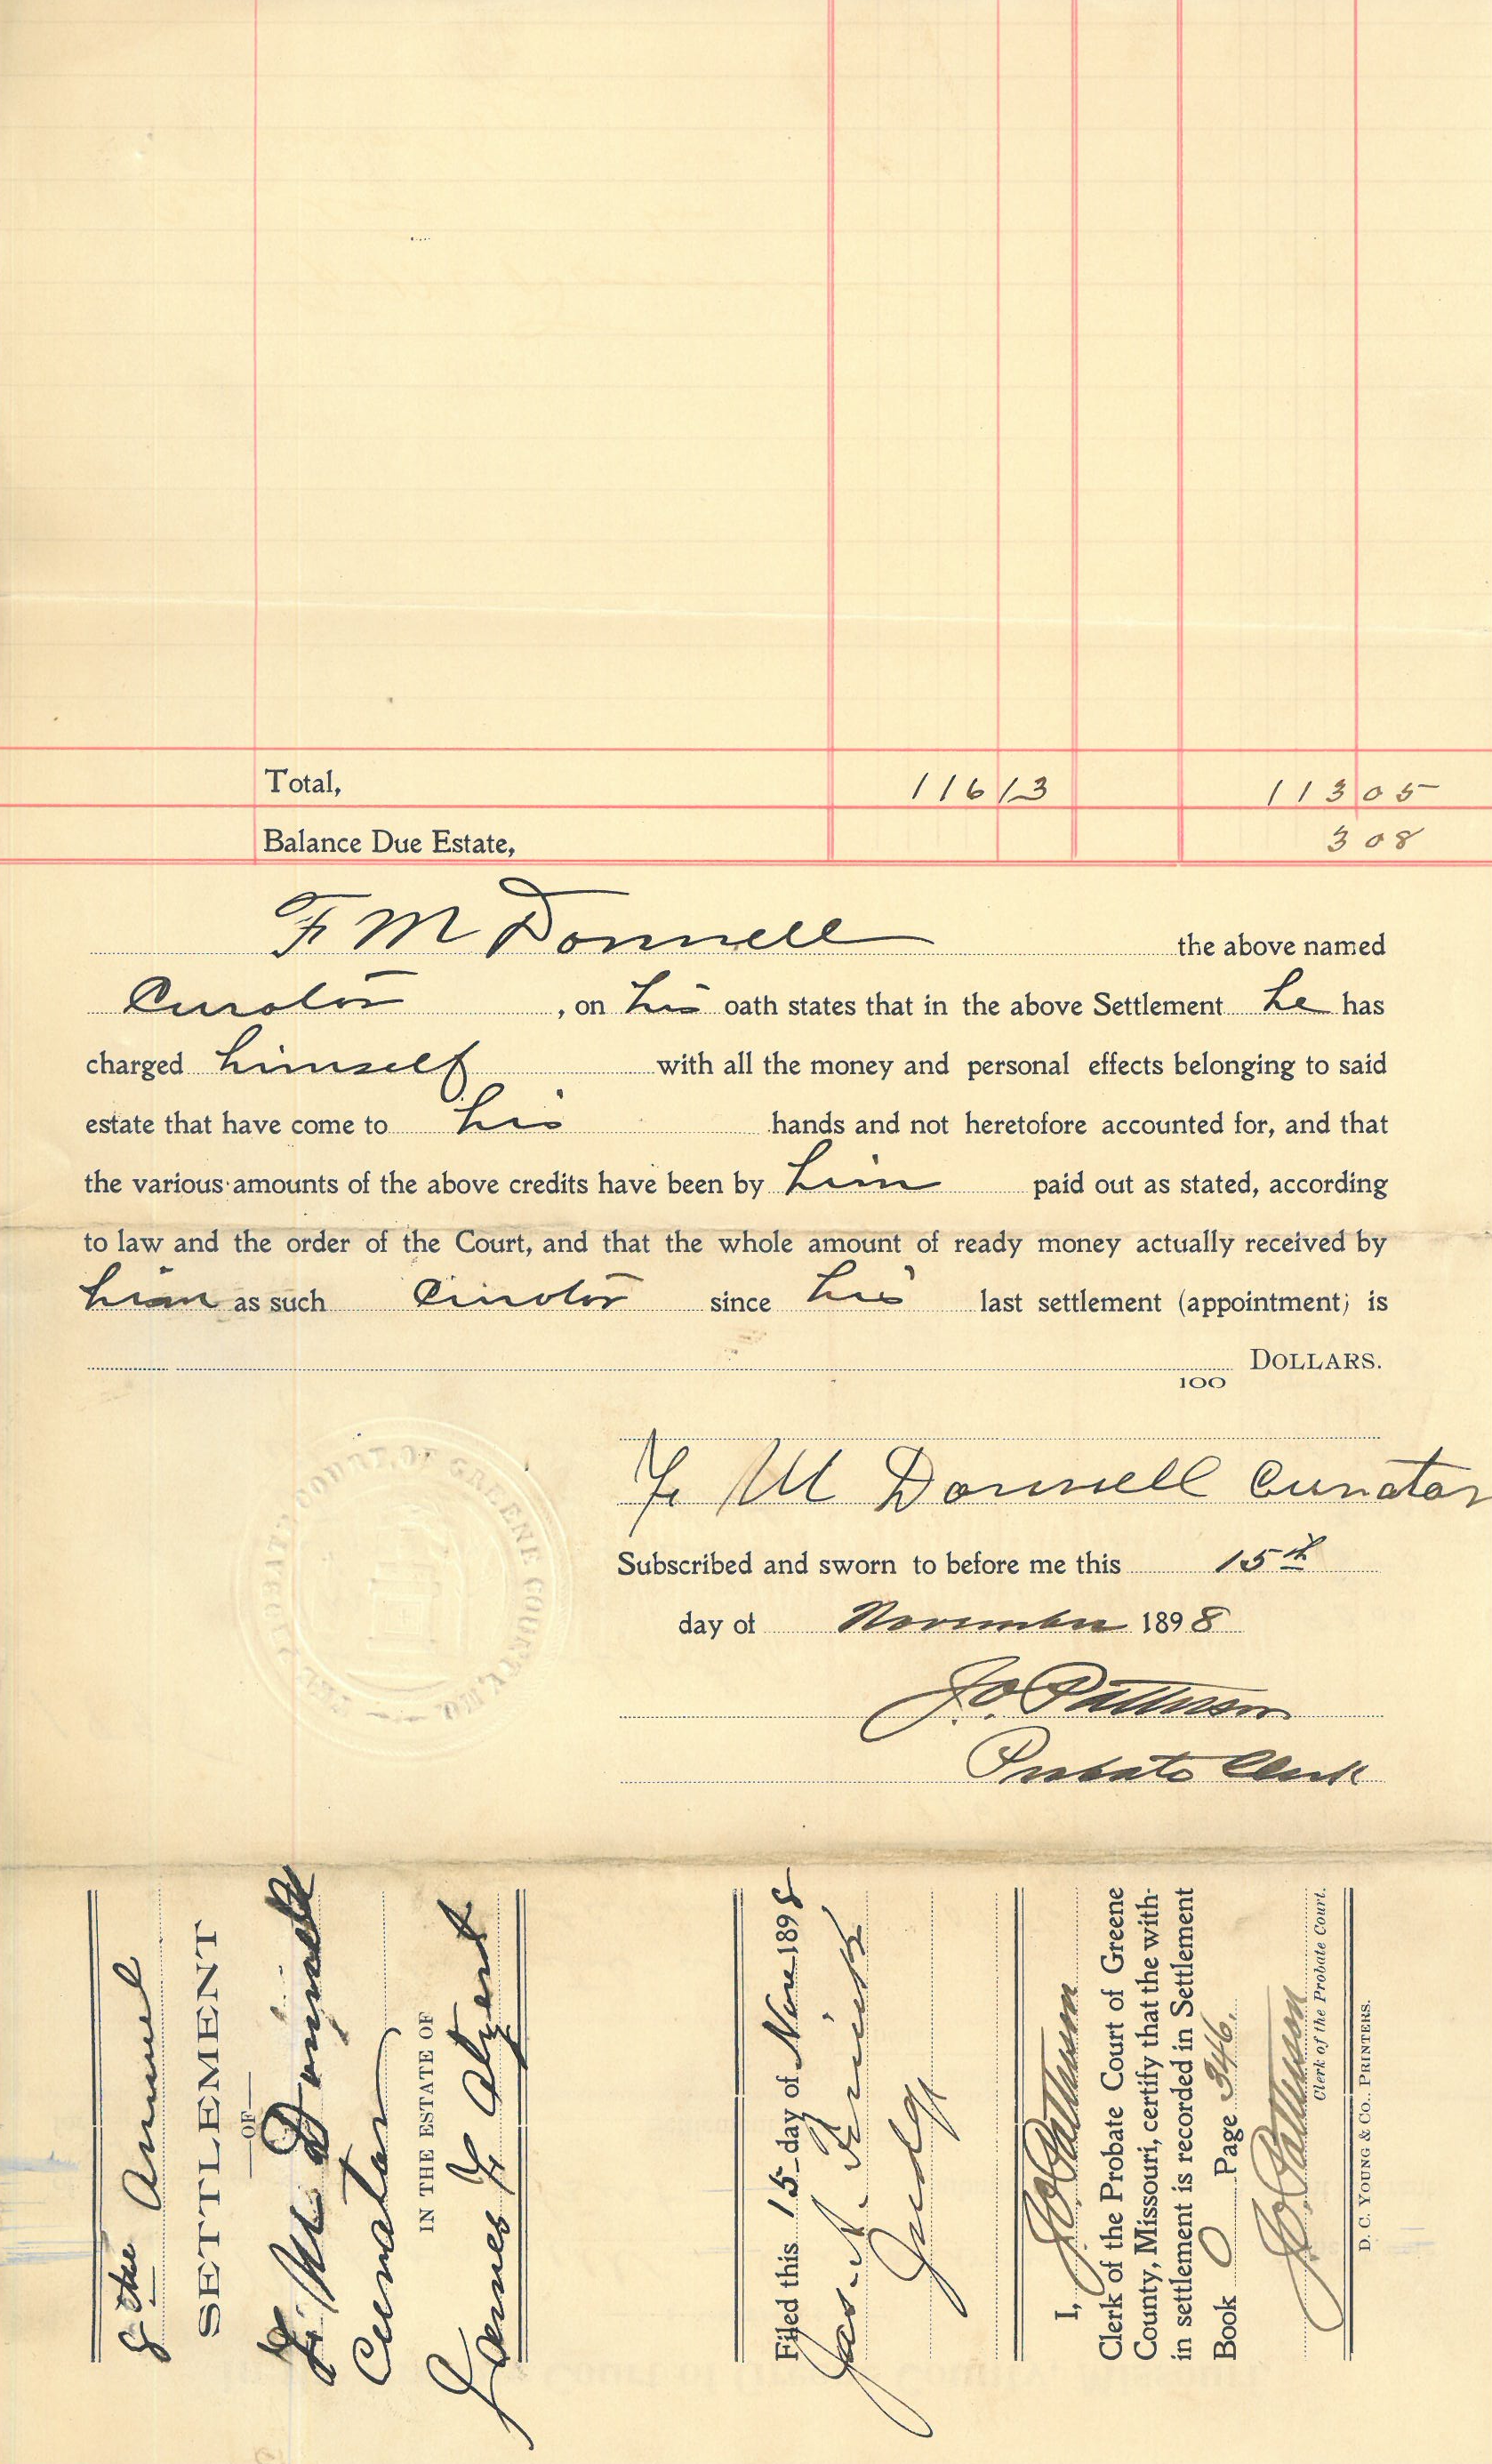 Total, 116 13 113 05
Balance Due Estate, 3 08
F M Donnell the above named
Curator , on his oath states that in the above Settlement he has
charged himself with all the money and personal effects belonging to said
estate that have come to his hands and not heretofore accounted for, and that
the various amounts of the above credits have been by him paid out as stated, according
to law and the order of the Court, and that the whole amount of ready money actually received by
him as such Curator since his last settlement (appointment) is
100 DOLLARS.
F M Donnell Curator
Subscribed and sworn to before me this 15th
day of November 1898
J.O. Patterson
Probate Clerk
THE PROBATE COURT, OF GREENE COUNTY, MO.
8 Annual
SETTLEMENT
OF
F. M Donnell
Curator
IN THE ESTATE OF
James F
Filed this 15 day of Nov 1898
Jas. 
Judge
I, J.O. Patterson
Clerk of the Probate Court of Greene
County, Missouri, certify that the with-
in settlement is recorded in Settlement
Book O Page 346.
J.O. Patterson
Clerk of the Probate Court.
D. C. YOUNG & CO., PRINTERS.